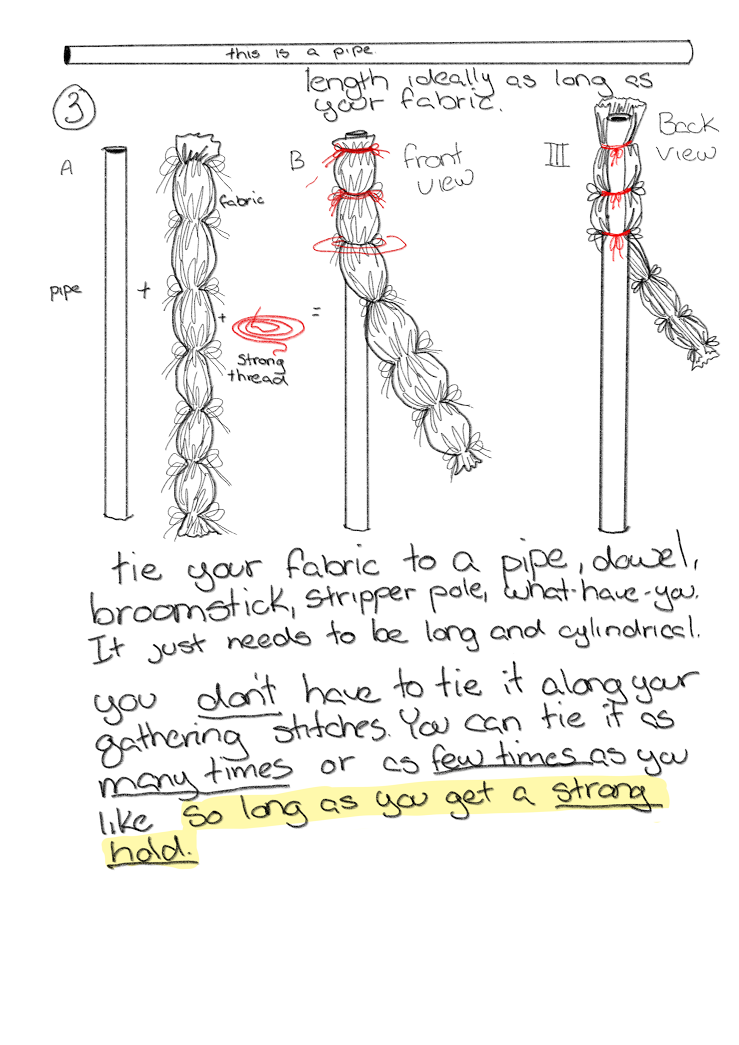 this is a pipe
length ideally as long as
your fabric.
3
A
B
front
view
III
Back
view
fabric
pipe
+
+
=
strong
thread
tie your fabric to a pipe, dowel,
broomstick, stripper pole, what-have-you.
It just needs to be long and cylindrical.
you don't have to tie it along your
gathering stitches. You can tie it as
many times or as few times as you
like so long as you get a strong
hold.